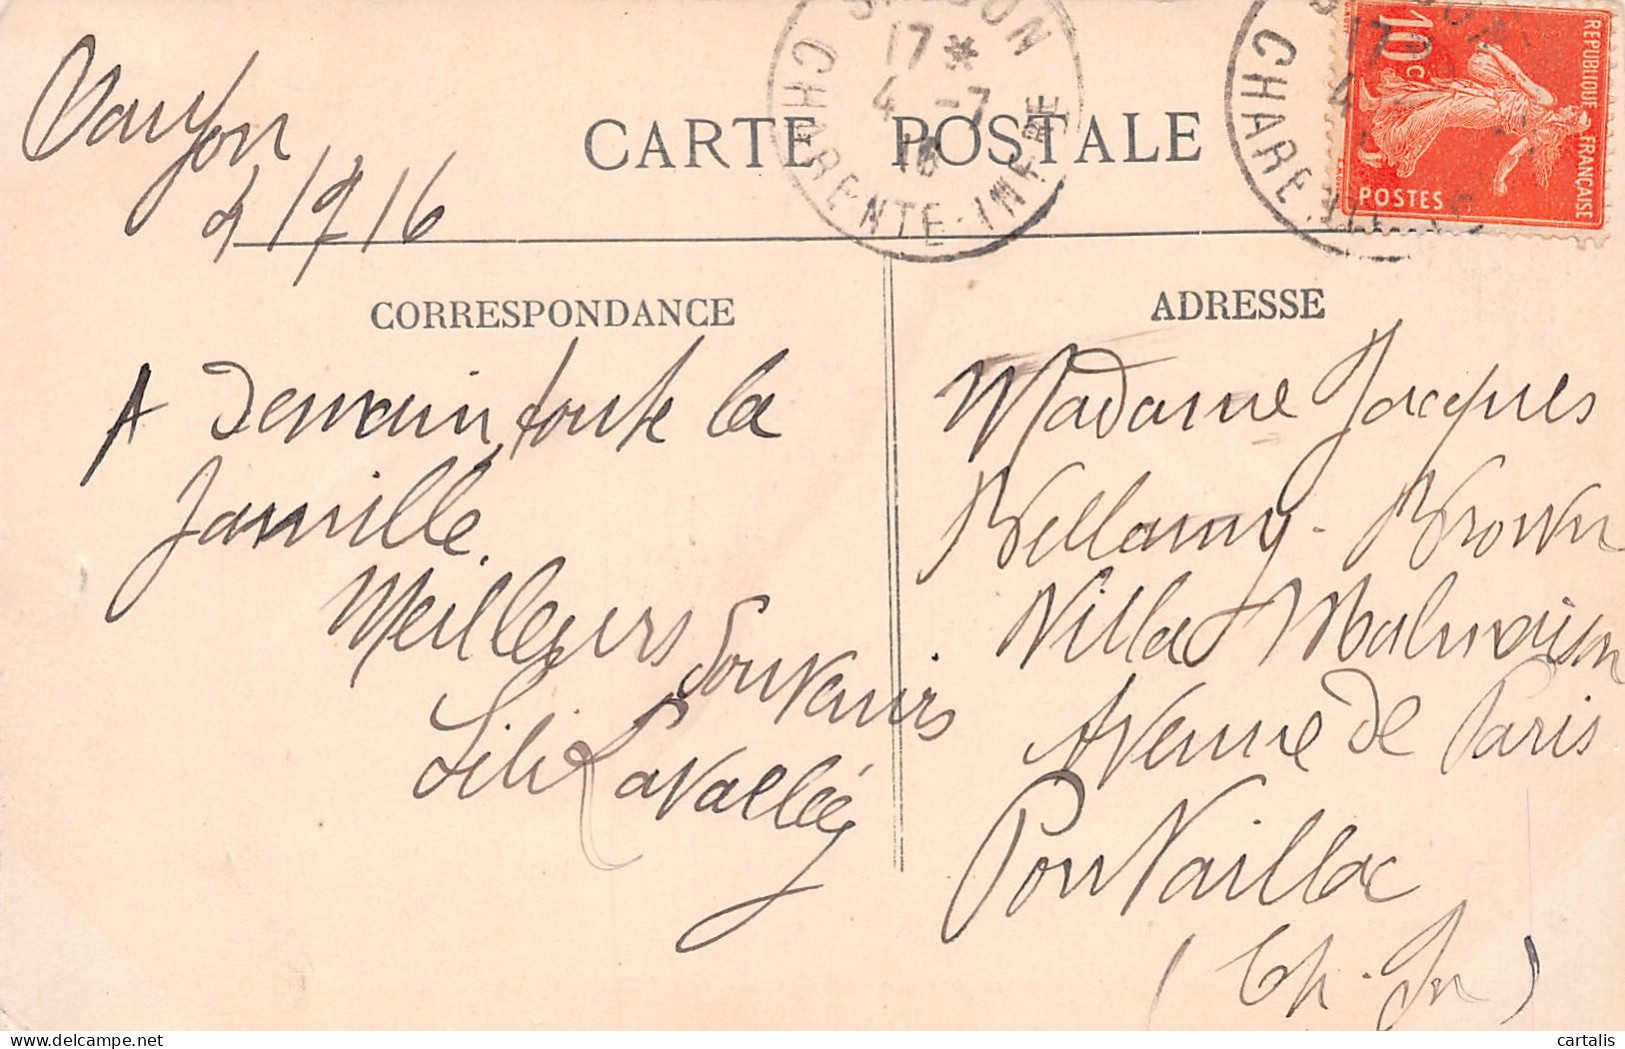 CARTE POSTALE
17 *
4 -7
16
CHARENTE-INFRE
10c
REPUBLIQUE FRANÇAISE
POSTES
17-
4
CHARENTE
Saujon
4/7/16
CORRESPONDANCE
A Demain, toute la
famille.
Meilleurs souvenirs
Lili Lavallée
ADRESSE
Madame Jacques
Bellamy-Brown
Villa Malmaison
Avenue de Paris
Pontaillac
(Ch. In)
cartalis
delcampe.net